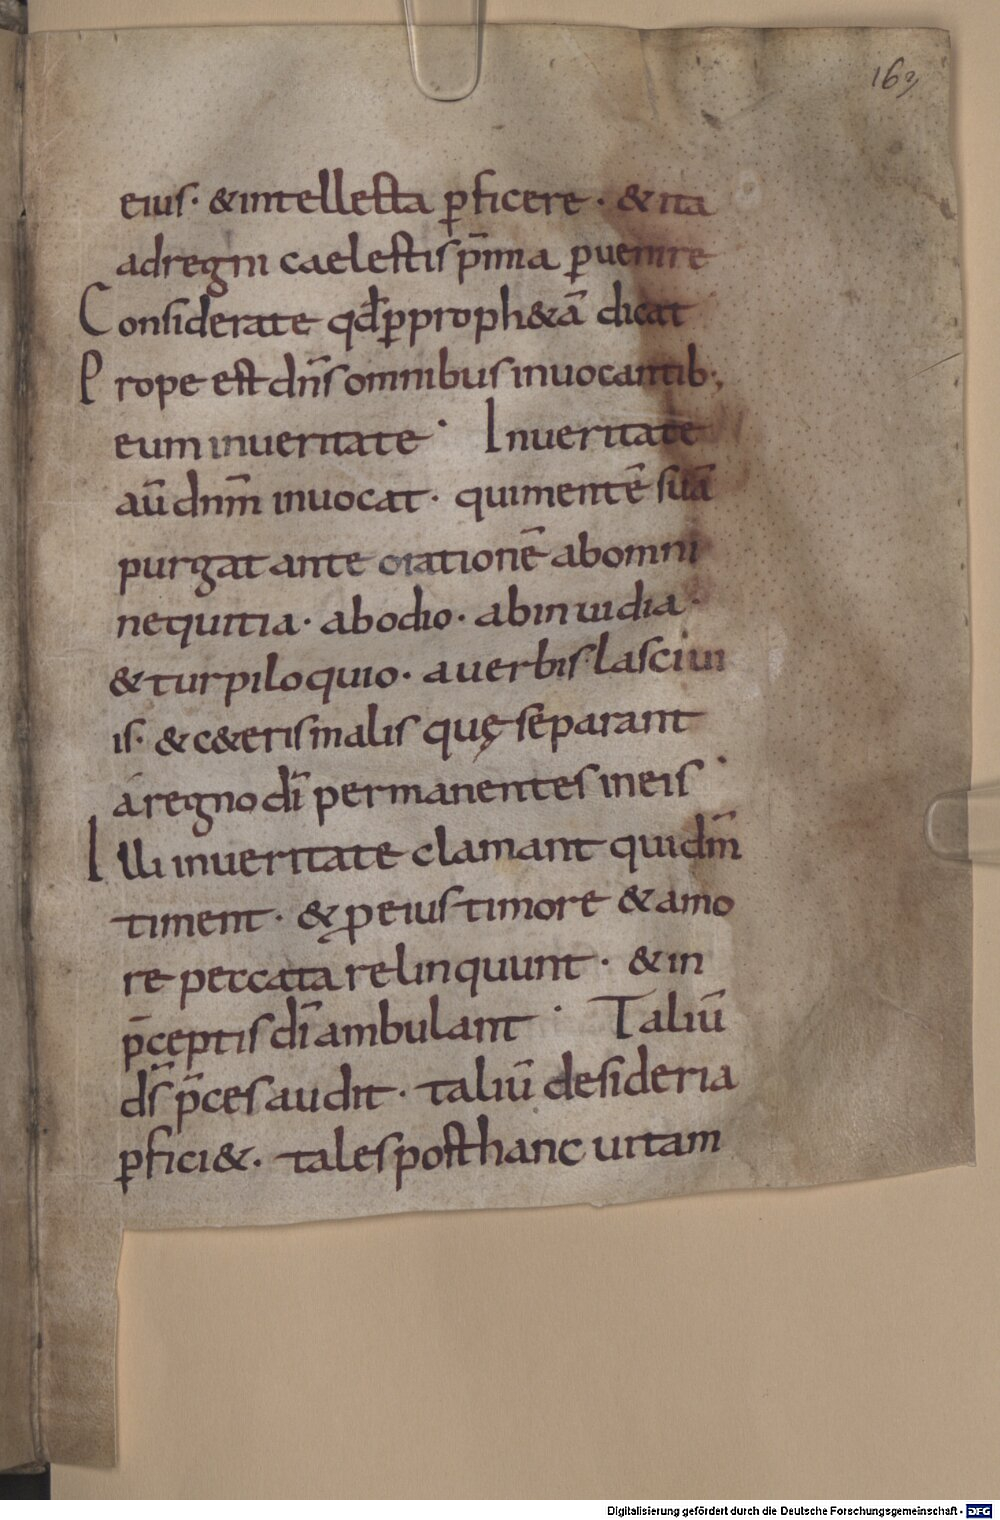 163
eius· &intellecta ꝑficere · & ita
adregni caelestis p̄mia ꝑuenire
Considerate qđ ꝑproph&ā dicat
Prope est dn̄s omnibus inuocantib·,
eum inueritate · Inueritate
aū dnm̄ inuocat · quimentē suā
purgat ante orationē abomni
nequitia · abodio · abinuidia ·
& turpiloquio · auerbis lasciui
is· & c&eris malis quę separant
a regno dī permanentes ineis ·
Illi inueritate clamant quidm̄
timent · & ꝑ eius timore & amo
re peccata relinquunt · & in
p̄ceptis dī ambulant · Taliū
ds̄ p̄ces audit · taliū desideria
ꝑfici& · tales posthanc uitam
Digitalisierung gefördert durch die Deutsche Forschungsgemeinschaft - DFG